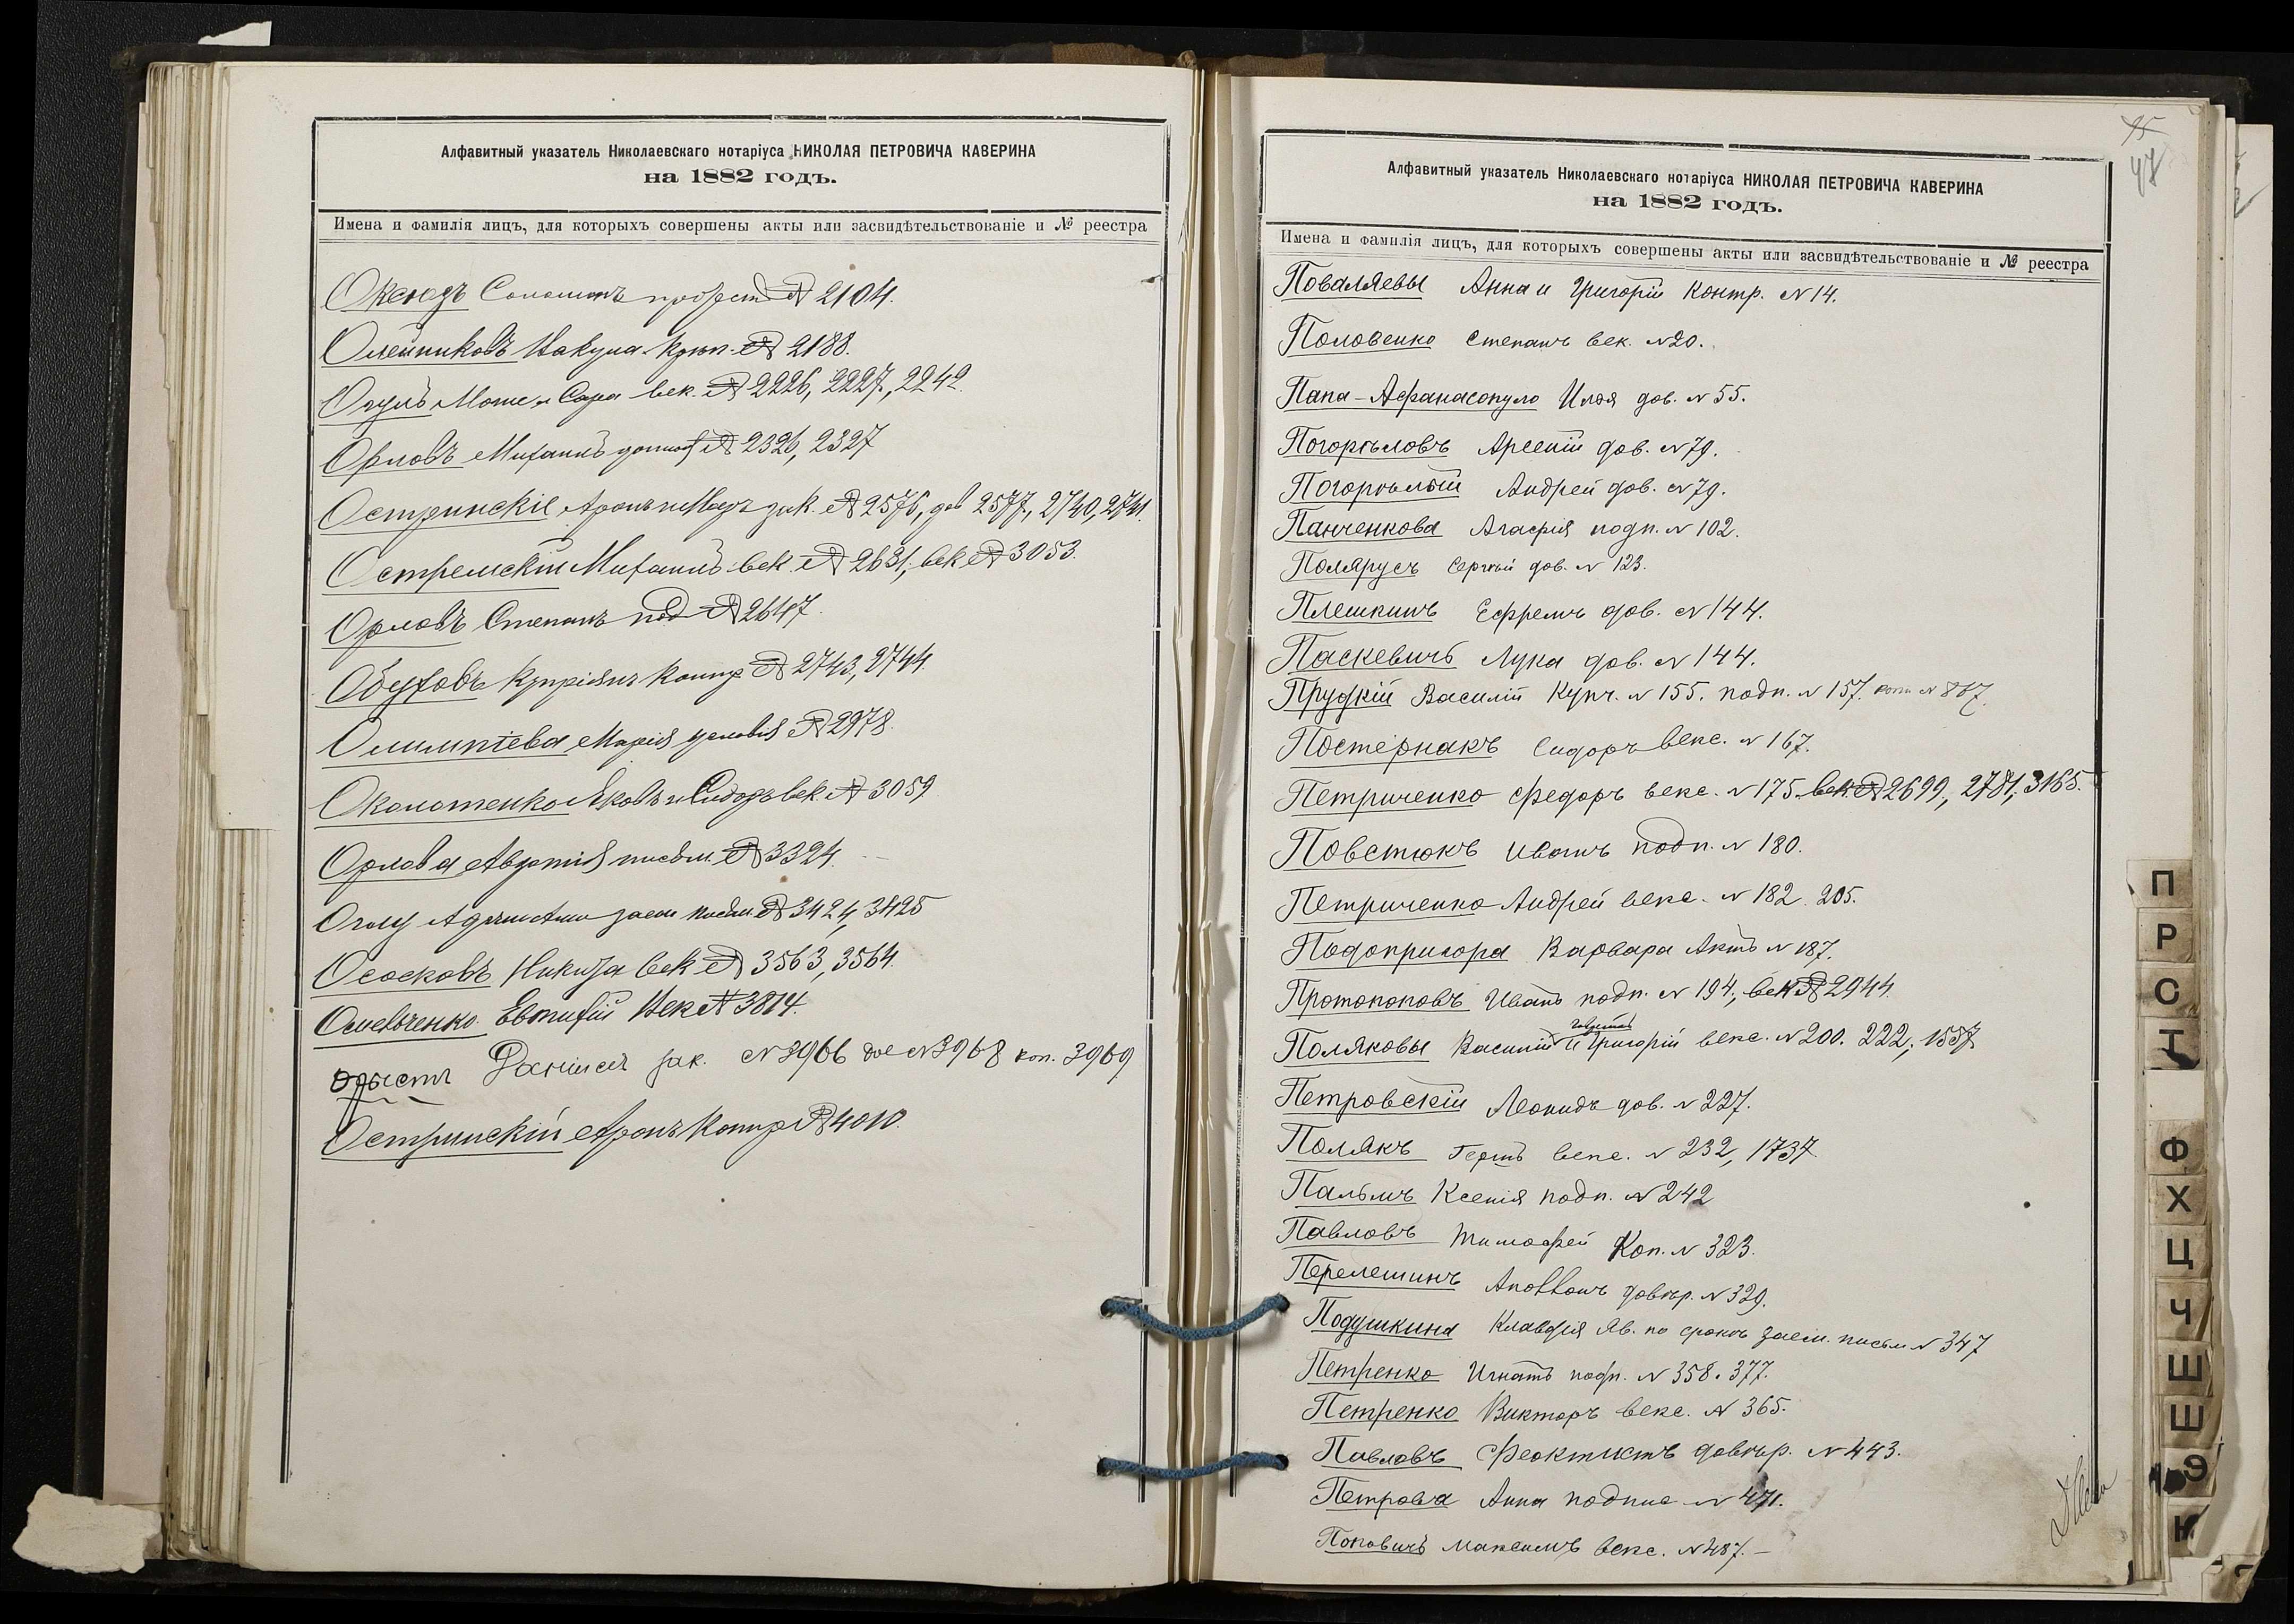 Алфавитный указатель Николаевскаго нотаріуса НИКОЛАЯ ПЕТРОВИЧА КАВЕРИНА
на 1882 годъ.
Имена и фамилія лицъ, для которыхъ совершены акты или засвидѣтельствованіе и № реестра
Оксюзъ Соломонъ протест № 2104.
Олейниковъ Накума № 2188.
Моше и Сара век. № 2226, 2227, 2242.
Орловъ Михаилъ № 2326, 2327
Остринскіе Аронъ и зак. № 2576, дов 2577, 2740, 2741.
Остремскій Михаилъ век. № 2631, век № 3053.
Орловъ Степанъ под № 2647.
Обуховъ Купріянъ контр № 2743, 2744
Олимпіева Марія условія № 2978.
Околотенко Яковъ и Сидоръ век. № 3059
Орлова Авдотія письм. № 3324.
Оглу заем письм № 3424, 3425
Ососковъ Никита век № 3563, 3564.
Евтифій Век № 3814.
зак. № 3966 дов № 3968 коп. 3969
Остринскій Аронъ Контр № 4010.
45
47
Алфавитный указатель Николаевскаго нотаріуса НИКОЛАЯ ПЕТРОВИЧА КАВЕРИНА
на 1882 годъ.
Имена и фамилія лицъ, для которыхъ совершены акты или засвидѣтельствованіе и № реестра
Поваляевы Анна и Григорій Контр. № 14.
Половенко Степанъ век. № 20.
Папа-Афанасопуло Илія дов. № 55.
Погорѣловъ Арсеній дов. № 79.
Погорѣлый Андрей дов. № 79.
Панченкова Агафія подп. № 102.
Полярусъ Сергѣй дов. № 123.
Плешкинъ Ефремъ дов. № 144.
Паскевичъ Лука дов. № 144.
Прудкій Василій Купч. № 155. подп. № 157. коп № 867.
Постернакъ Сидоръ векс. № 167.
Петриченко Федоръ векс. № 175. век. № 2699, 2781, 3165.
Повстюкъ Иванъ подп. № 180.
Петриченко Андрей векс. № 182. 205.
Подопригора Варвара Актъ № 187.
Протопоповъ Иванъ подп. № 194; век № 2944
Поляковы Василій и Григорій векс. № 200. 222; 1557
Петровскій Леонидъ дов. № 227.
Полякъ Гершъ векс. № 232, 1737.
Пальмъ Ксенія подп. № 242
Павловъ Тимофей Коп. № 323.
Перелешинъ Аполлонъ довѣр. № 329.
Подушкина Клавдія Яв. по срокѣ заем. письм № 347
Петренко Игнатъ подп. № 358. 377.
Петренко Викторъ векс. № 365.
Павловъ Феоктистъ довѣр. № 443.
Петрова Анна подпис № 471.
Поповичъ Максимъ векс. № 487.
П
Р
С
Т
Ф
Х
Ц
Ч
Ш
Ш
Э